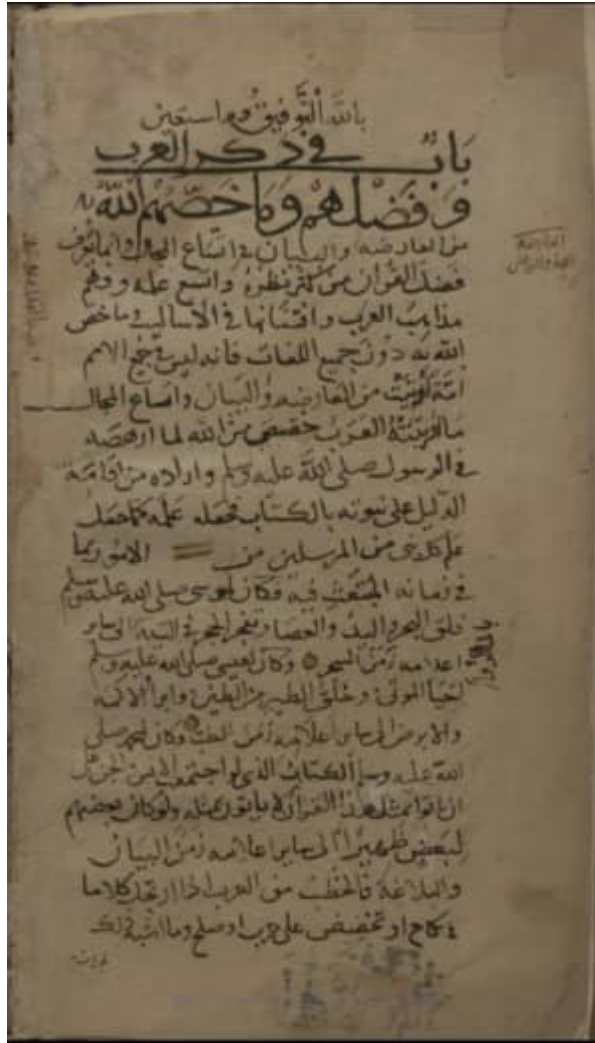 بالله التوفيق وبه استعين
باب في ذكر العرب
وفضلهم وما خصهم الله به
من العارضة والبيان في اتساع المجال وانما يعرف
فضل القران من كثر نظره واتسع علمه وفهم
مذاهب العرب وافتنانها في الاساليب وما خص
الله به دون جميع اللغات فانه ليس في جميع الامم
امة اوتيت من العارضه والبيان واتساع المجال
ما اوتيته العرب خصيصى من الله لما ارهصه
في الرسول صلى الله عليه وسلم واراده من اقامة
الدليل على نبوته بالكتاب فجعله علمه كما جعل
علم كل نبي من المرسلين من الامور بما
في زمانه المبعث فيه فكان لموسى صلى الله عليه وسلم
فلق البحر واليد والعصا وتفجر الحجر في التيه الى ساير
اعلامه زمن السحر وكان لعيسى صلى الله عليه وسلم
احيا الموتى وخلق الطير من الطين وابرا الاكمه
والابرص الى ساير اعلامه زمن الطب وكان لمحمد صلى
الله عليه وسلم الكتاب الذي لو اجتمعت الانس والجن على
ان ياتوا بمثل هذا القران لا ياتون بمثله ولو كان بعضهم
لبعض ظهيرا الى ساير اعلامه زمن البيان
والبلاغة فالخطيب من العرب اذا ارتجل كلاما
في نكاح او تحضيض على حرب او صلح وما اشبه ذلك
العارضة